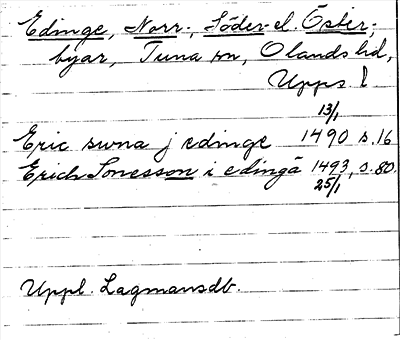 Edinge, Norr-, Söder- el. Öster-
byar, Tuna sn, Olands hd,
Upps l
13/1
Eric suna j edinge 1490 s. 16
Erich Sonesson i edingä 1493, s. 80.
25/1
Uppl. Lagmansdb.